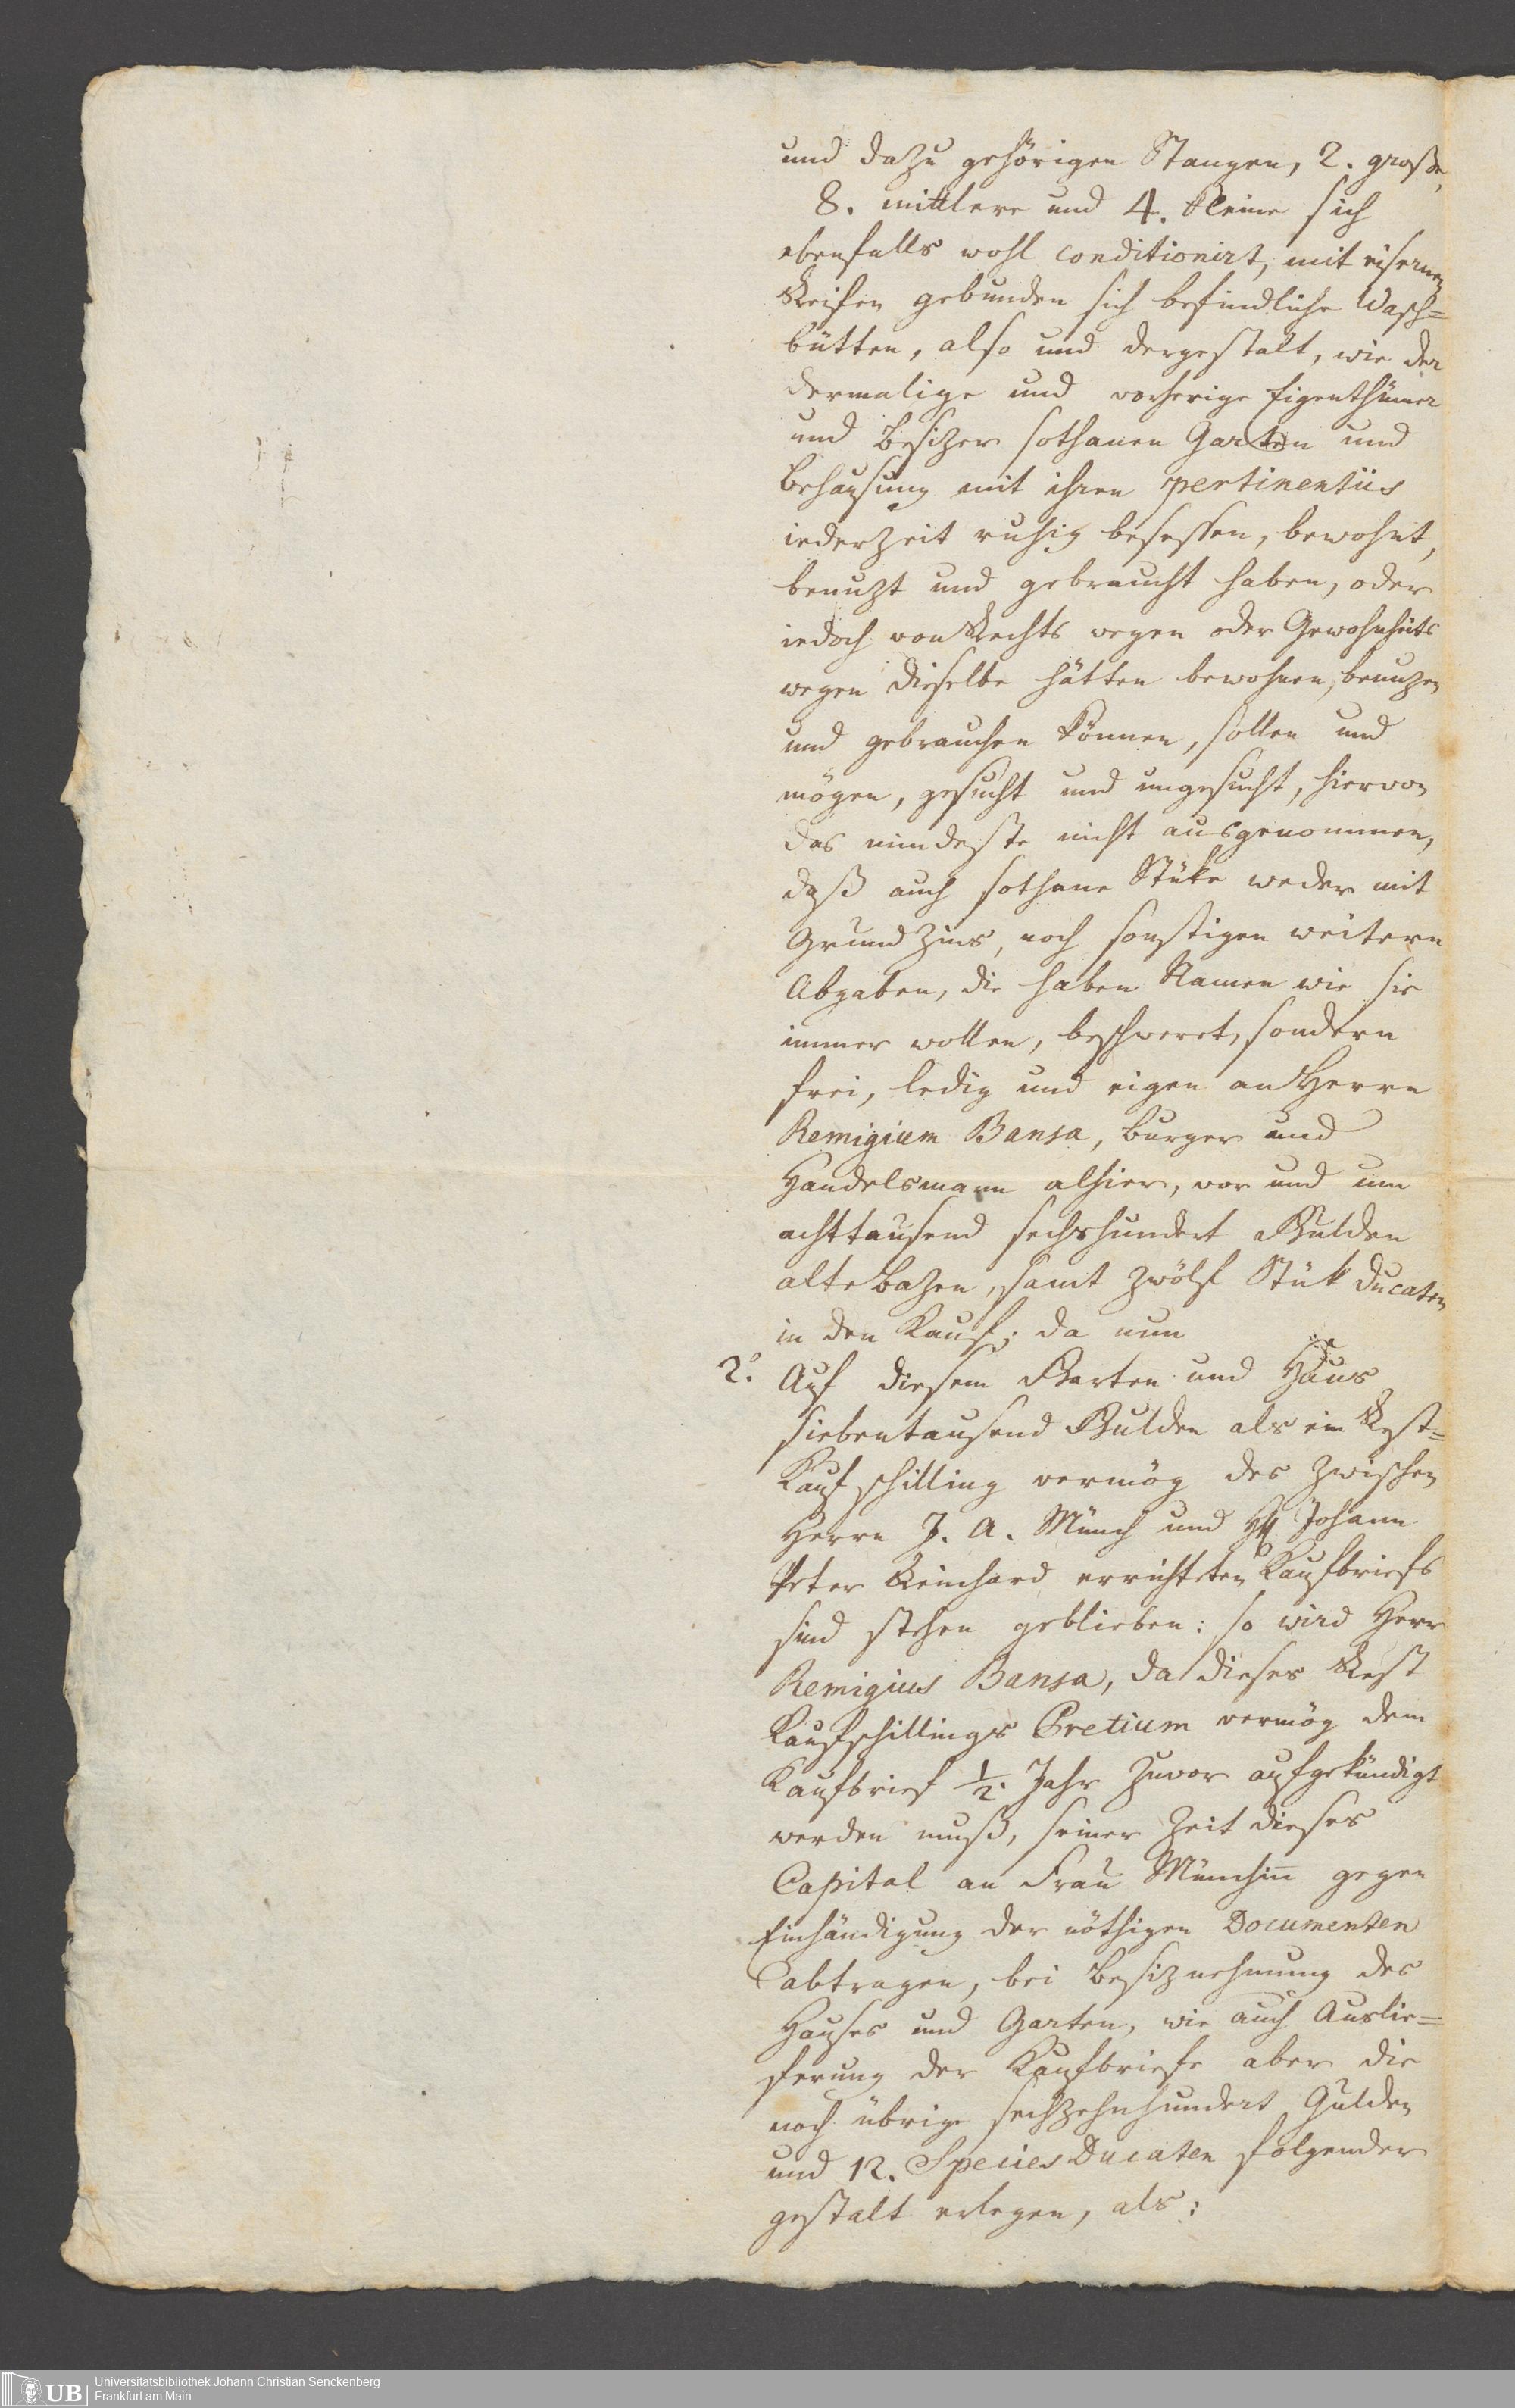 und dazu gehörigen Stangen, 2. große,
8. mittlere und 4. kleine sich
ebenfalls wohl conditionirt, mit eisernen
Reifen gebunden sich befindliche Wasch=
bütten, also und dergestalt, wie der
dermalige und vorherige Eigenthümer
und Besizer sothanen Garten und
Behausung mit ihren pertinentiis
iederzeit ruhig besessen, bewohnt,
benuzt und gebraucht haben, oder
iedoch von Rechts wegen oder Gewohnheits
wegen dieselbe hätten bewohnen, benuzen
und gebrauchen können, sollen und
mögen, gesucht und ungesucht, hiervon
das mindeste nicht ausgenommen,
daß auch sothane Stüke weder mit
Grundzins, noch sonstigen weitern
Abgaben, die haben Namen wie sie
immer wollen, beschweret, sondern
frei, ledig und eigen an Herrn
Remigium Bansa, Burger und
Handelsmann alhier, vor und um
achttausend sechshundert Gulden
alte Bazen, samt zwölf Stük Ducaten
in den Kauf; da nun
2.° Auf diesem Garten und Haus
siebentausend Gulden als ein Rest=
Kaufschilling vermög des zwischen
Herrn J. A. Münch und H. Johann
Peter Reinhard errichteten Kaufbriefs
sind stehen geblieben: so wird Herr
Remigius Bansa, da dieses Rest
Kaufschillings Pretium vermög dem
Kaufbrief 1/2. Jahr zuvor aufgekündigt
werden muß, seiner Zeit dieses
Capital an Frau Münchin gegen
Einhändigung der nöthigen Documenten
abtragen, bei Besiznehmung des
Hauses und Garten, wie auch Auslie=
ferung der Kaufbriefe aber die
noch übrige sechzehnhundert Gulden
und 12. Species Ducaten folgender
gestalt erlegen, als:
UB Universitätsbibliothek Johann Christian Senckenberg
Frankfurt am Main